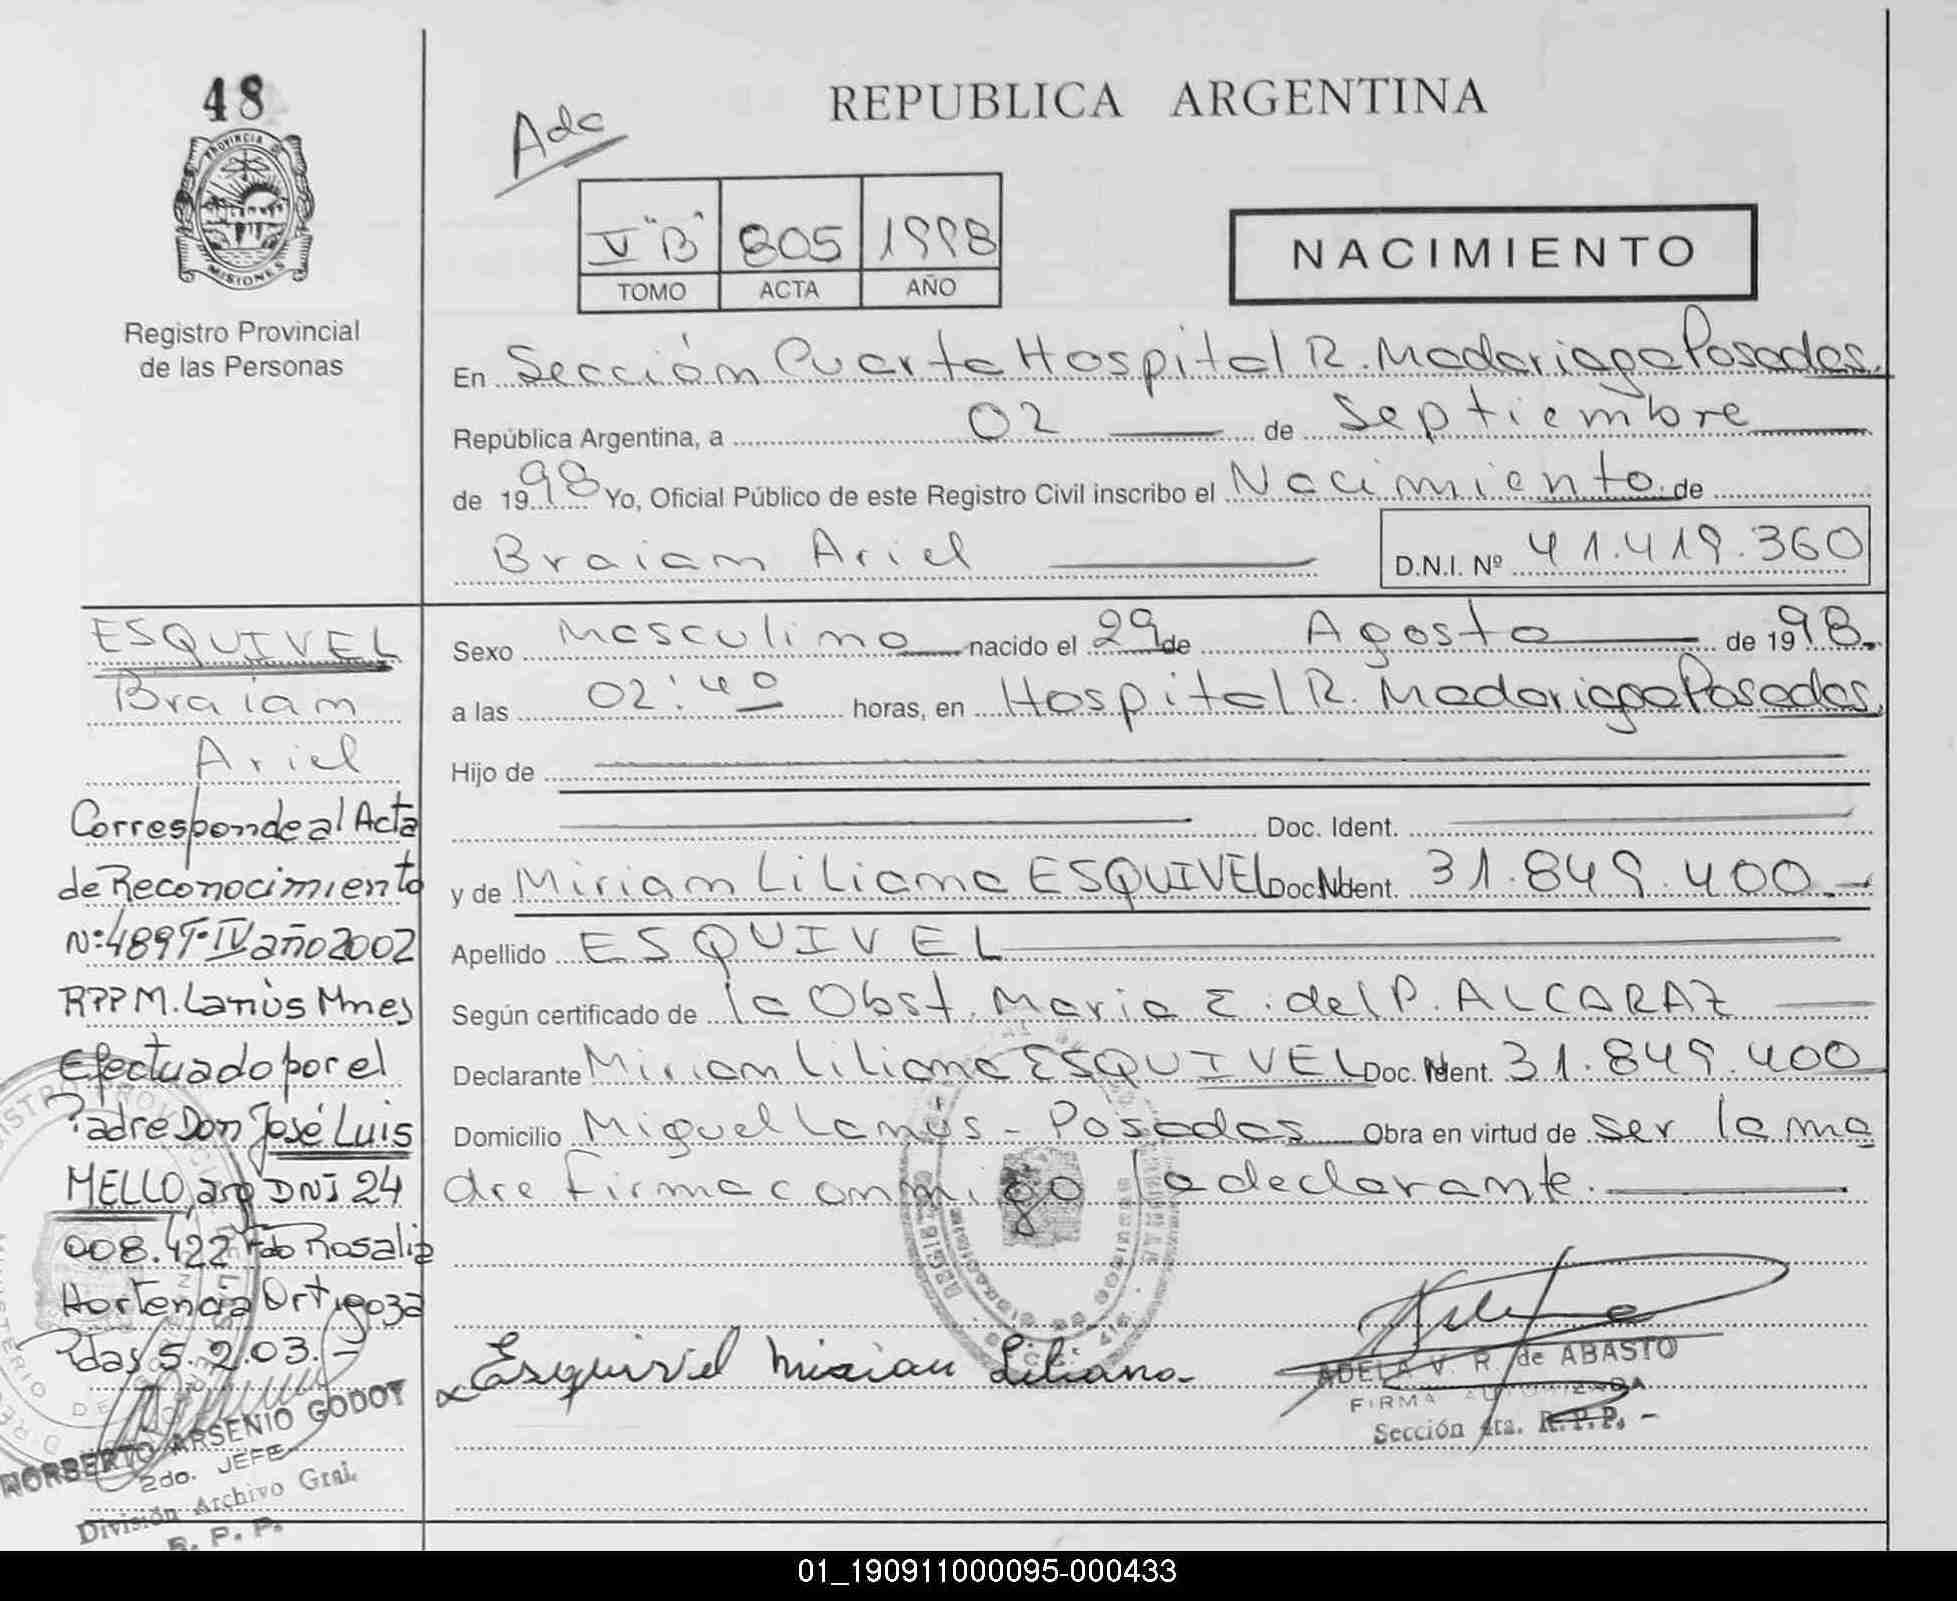 48
PROVINCIA DE
MISIONES
Registro Provincial
de las Personas
REPUBLICA ARGENTINA
Adc
V "B" 805 1998
TOMO ACTA AÑO
NACIMIENTO
En Sección Cuarta Hospital R. Madariaga Posadas.
República Argentina, a 02 de Septiembre
de 1998 Yo, Oficial Público de este Registro Civil inscribo el Nacimiento de
Braiam Ariel
D.N.I. Nº 41.419.360
Sexo Masculino nacido el 29 de Agosto de 1998.
a las 02:40 horas, en Hospital R. Madariaga Posadas,
Hijo de
Doc. Ident.
y de Miriam Liliana ESQUIVEL Doc. Ident. 31.849.400.-
Apellido ESQUIVEL
Según certificado de la Obst. Maria E. del P. ALCARAZ
Declarante Miriam Liliana ESQUIVEL Doc. Ident. 31.849.400
Domicilio Miguel Lanús - Posadas Obra en virtud de ser la ma
dre firma conmigo la declarante.
Esquivel Mirian Liliana.
ADELA V. R. de ABASTO
FIRMA AUTORIZADA
Sección 4ta. R.P.P. -
ESQUIVEL
Braiam
Ariel
Corresponde al Acta
de Reconocimiento
Nº:489 Tº IV año 2002
RPP M. Lanús Mnes
Efectuado por el
Padre Don José Luis
MELLO, arg DNI 24
008.422 Fdo Rosalia
Hortencia Ortigoza
Pdas 5.2.03.-
NORBERTO ARSENIO GODOY
2do. JEFE
División Archivo Gral.
R. P. P.
01_190911000095-000433